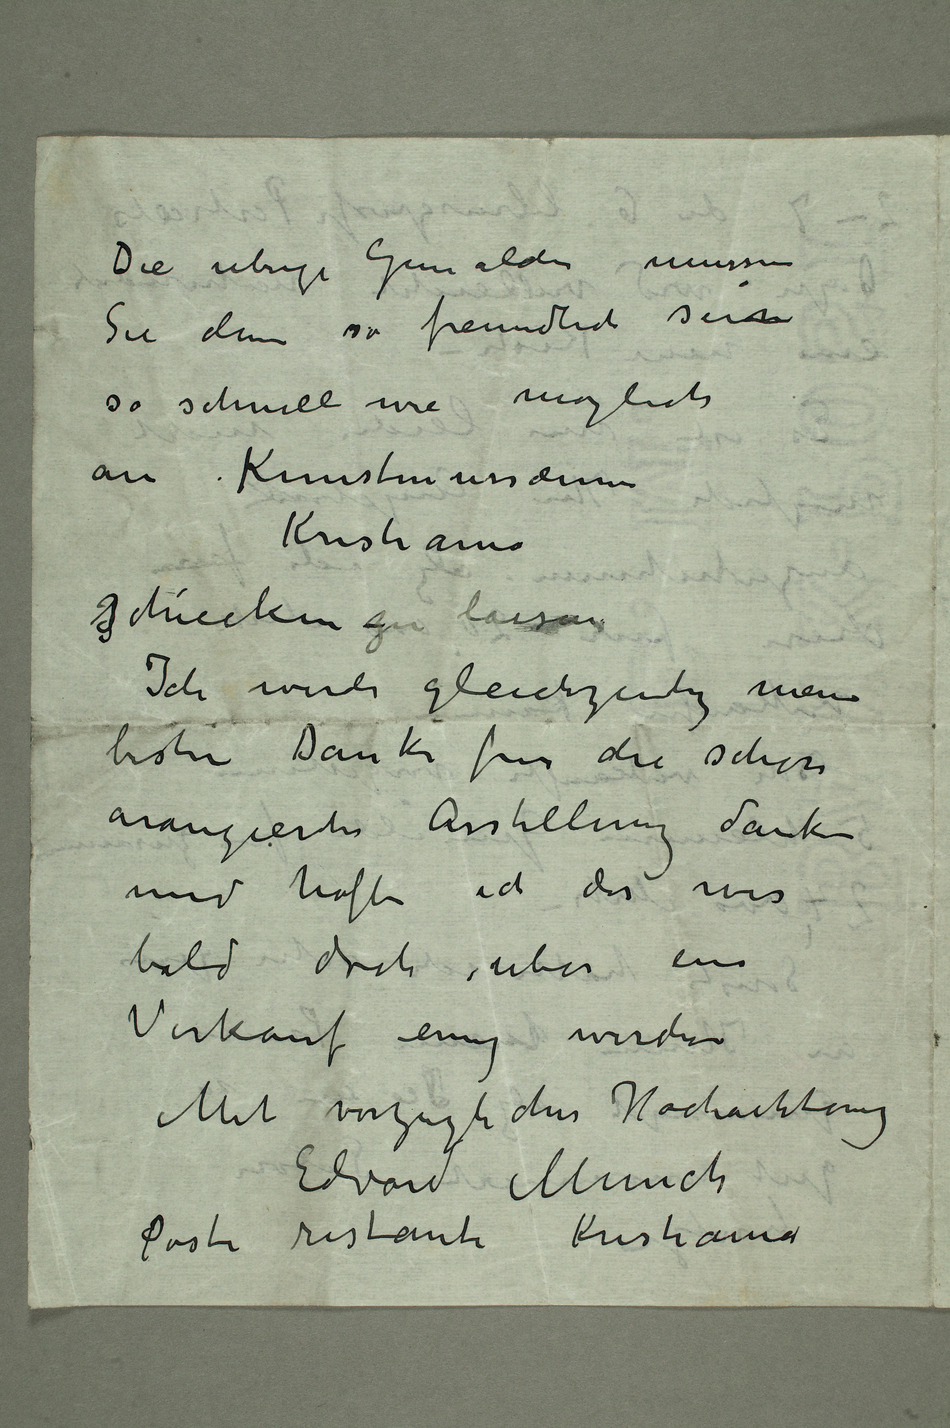 Die ubrige Gemälder mussen
Sie denn so freundlich sein
so schnell wie möglich
an Kunstmussæum
Kristiania
schiecken zu laissen
Ich werde gleichzeitig mein
besten Danke fur die schön
arangierte Asstellung danken
und hoffe ich das wir
bald doch uber ein
Verkauf einig werden
Mit vorzuglicher Hochachtung
Edvard Munch
Poste restante Kristiania